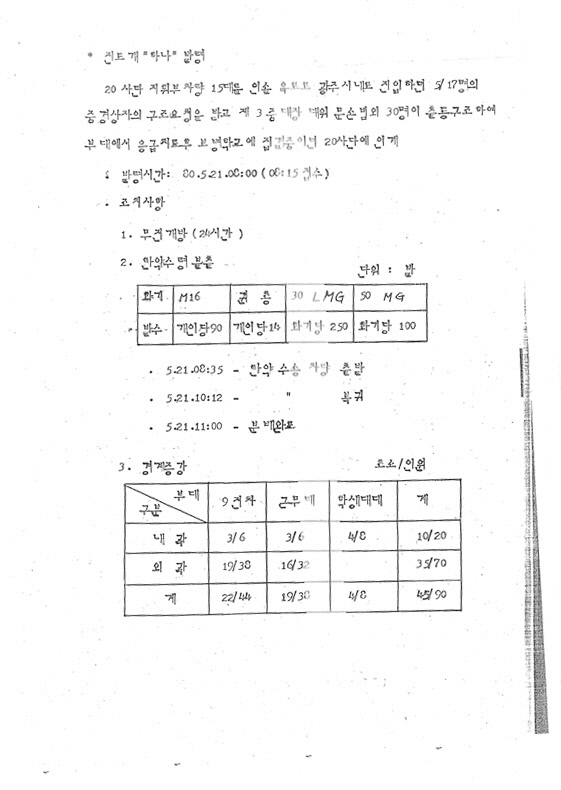 * 진도개 "하나" 발령
20사단 지휘부차량 15대를 인솔 육로로 광주시내로 진입하던 5/17명의
중경상자의 구조요청을 받고 제3중대장 대위 외 30명이 출동구조하여
부대에서 응급치료후 보병학교에 집결중이던 20사단에 인계
. 발령시간: 80.5.21.08:00 (08:15 접수)
. 조치사항
1. 무전개방 (24시간)
2. 탄약수령 분출
단위 : 발
화기 M16 권총 30 LMG 50 MG
발수 개인당90 개인당14 화기당 250 화기당 100
. 5.21.08:35 - 탄약 수송 차량 출발
. 5.21.10:12 - " 복귀
. 5.21.11:00 - 분배완료
3. 경계증강 초소/인원
부대 구분 9전차 근무대 학생대대 계
내곽 3/6 3/6 4/8 10/20
외곽 19/38 16/32 35/70
계 22/44 19/38 4/8 45/90